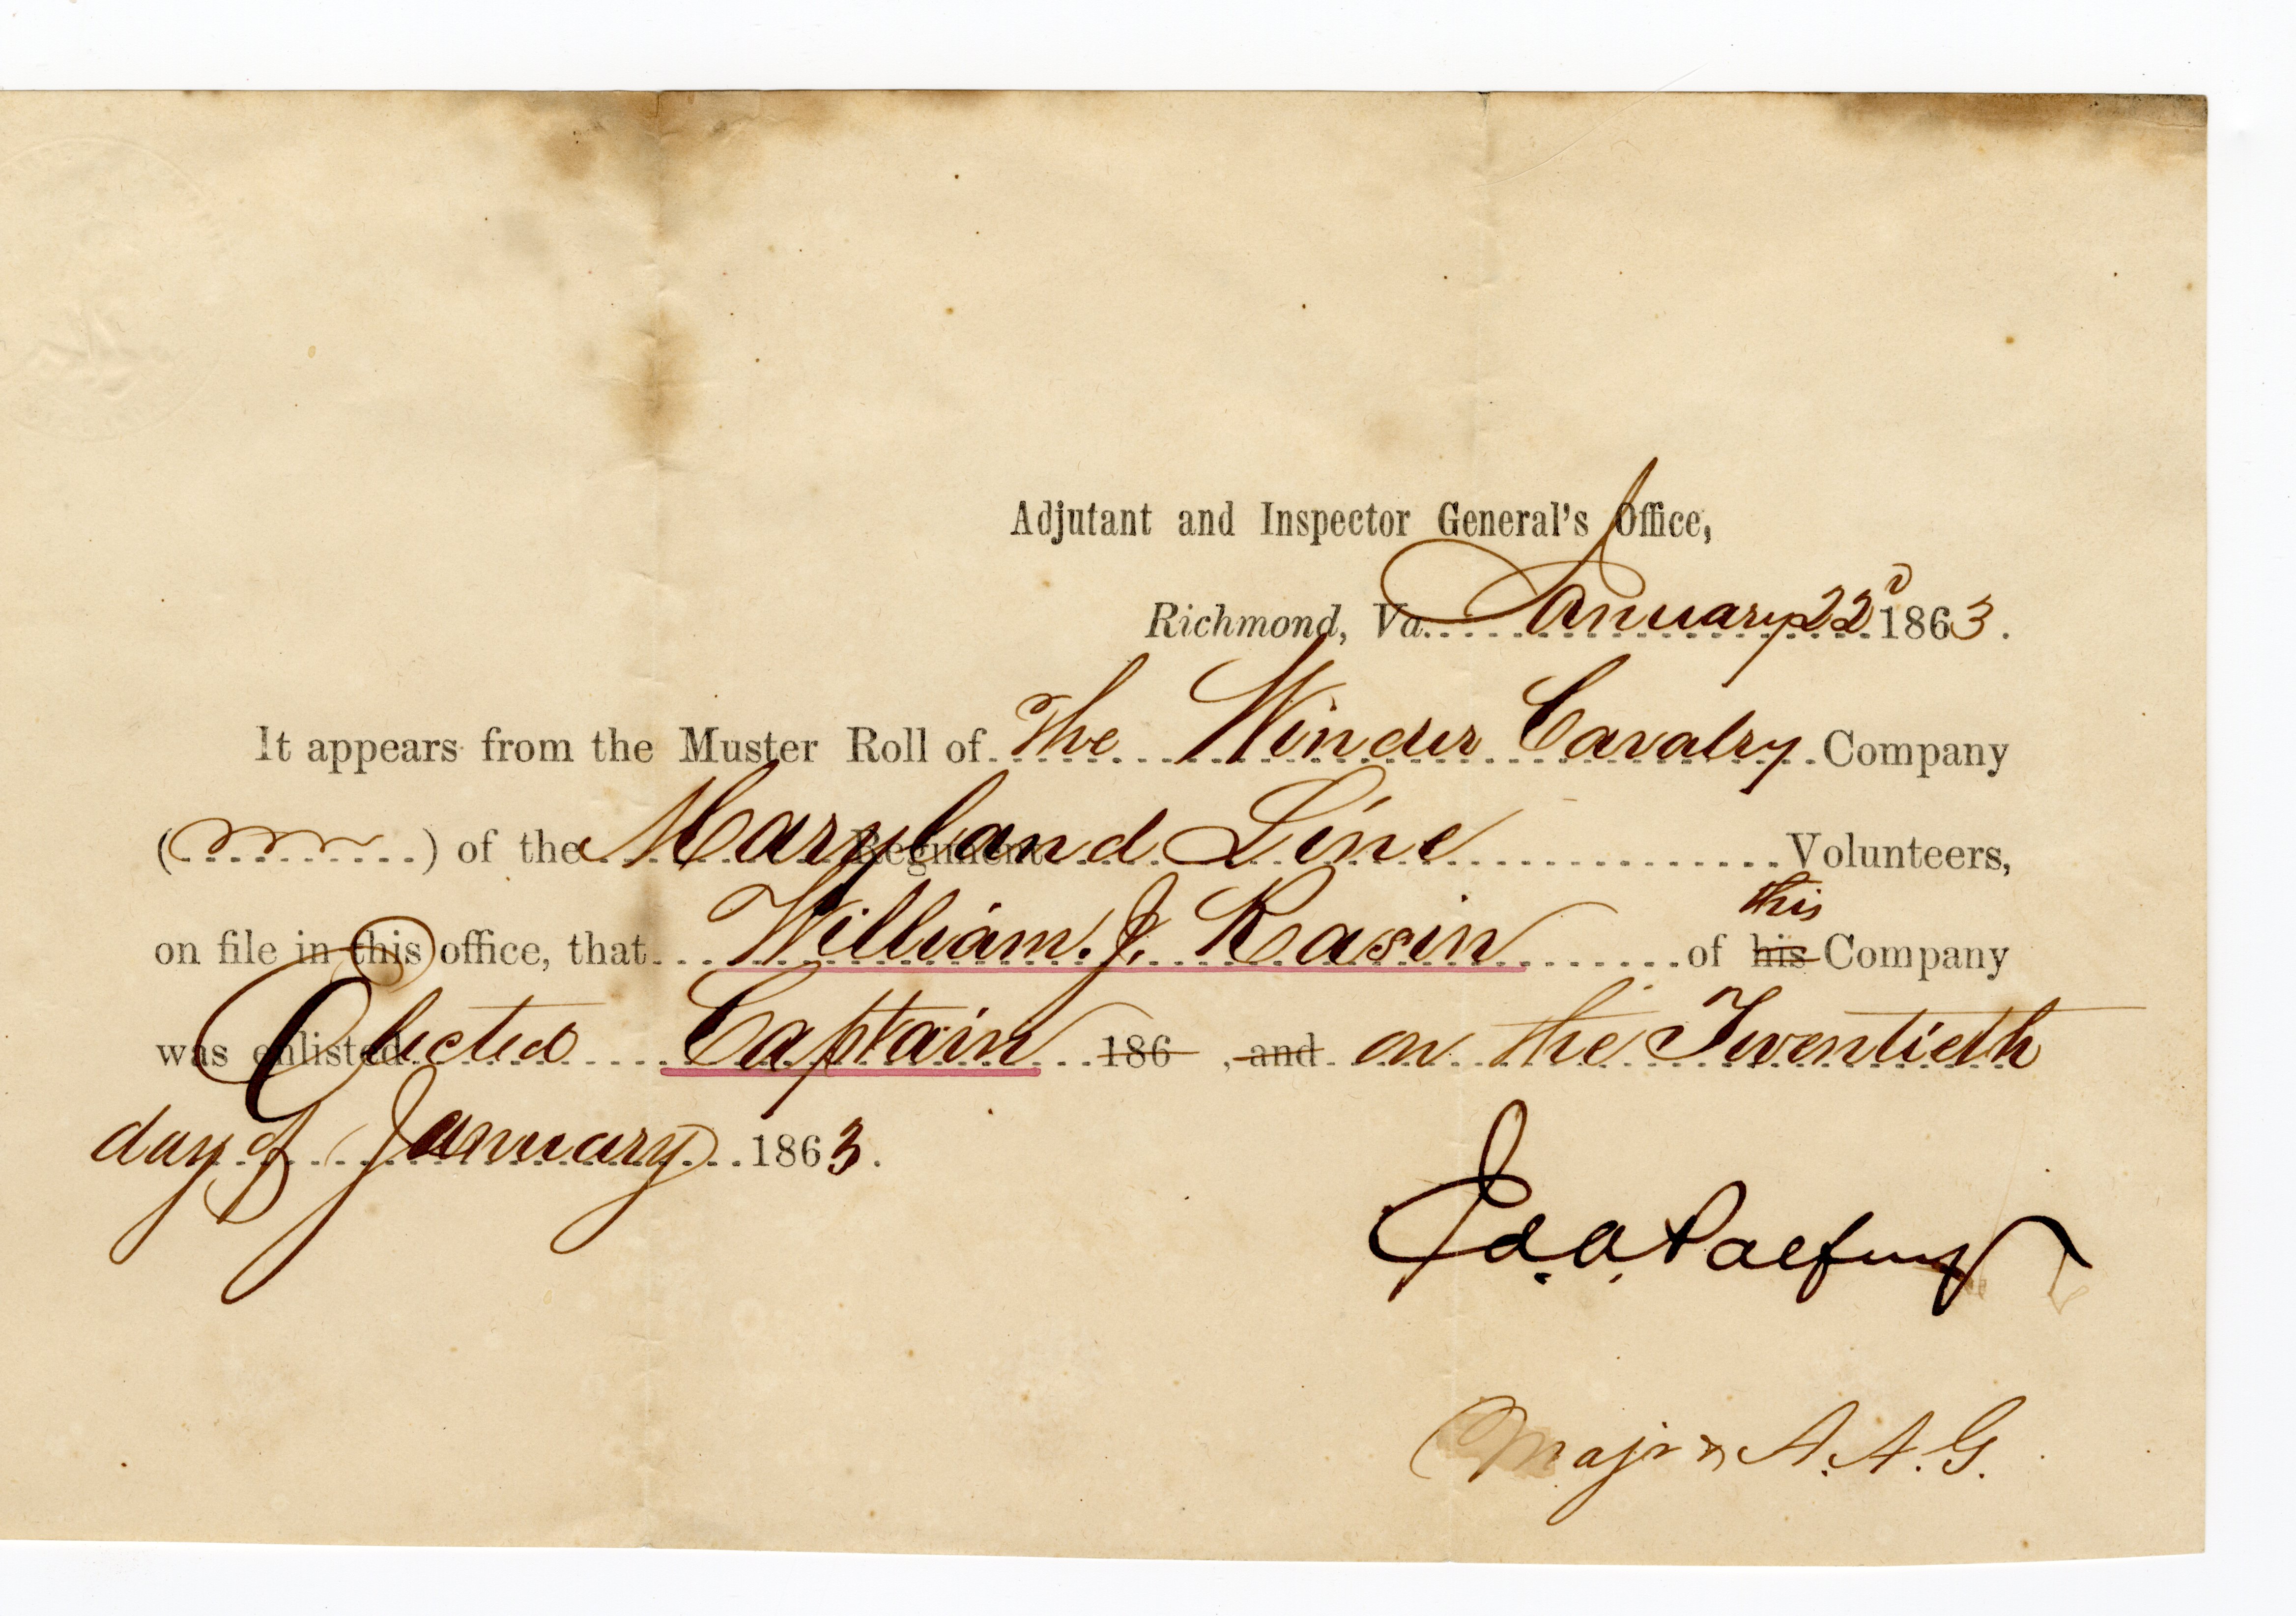 Adjutant and Inspector General's Office,
Richmond, Va. January 22d 1863.
It appears from the Muster Roll of The Winder Cavalry Company
( ) of the Regiment Maryland Line Volunteers,
this
on file in this office, that William. J. Rasin of his Company
was enlisted Elected Captain 186 , and on the Twentieth
day of January 1863.
Ed. A. Palfrey
Majr & A. A. G.